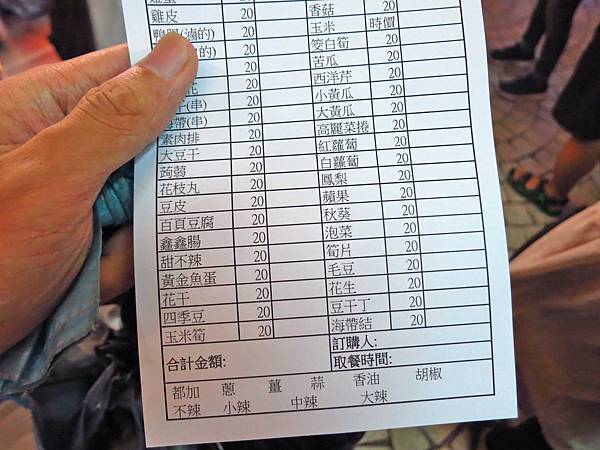 雞皮 20 香菇 20
鴨腸(滷的) 20 玉米 時價
的) 20 筊白筍 20
20 苦瓜 20
20 西洋芹 20
(串) 20 小黃瓜 20
海帶(串) 20 大黃瓜 20
素肉排 20 高麗菜捲 20
大豆干 20 紅蘿蔔 20
蒟蒻 20 白蘿蔔 20
花枝丸 20 鳳梨 20
豆皮 20 蘋果 20
百頁豆腐 20 秋葵 20
鑫鑫腸 20 泡菜 20
甜不辣 20 筍片 20
黃金魚蛋 20 毛豆 20
花干 20 花生 20
四季豆 20 豆干丁 20
玉米筍 20 海帶結 20
訂購人:
合計金額: 取餐時間:
都加 蔥 薑 蒜 香油 胡椒
不辣 小辣 中辣 大辣